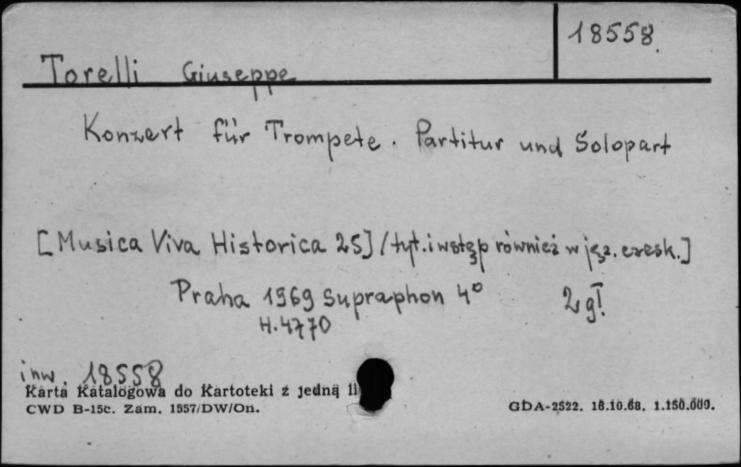 18558
Torelli Giuseppe
Konzert für Trompete. Partitur und Solopart
[Musica Viva Historica 25] /tyt. i wstęp również w jęz. czesk.]
Praha 1969 Supraphon 4° 2 gł.
H.4770
inw. 18558
Karta Katalogowa do Kartoteki z jedną li
CWD B-15c. Zam. 1557/DW/On.
GDA-2522. 16.10.68. 1.150.000.